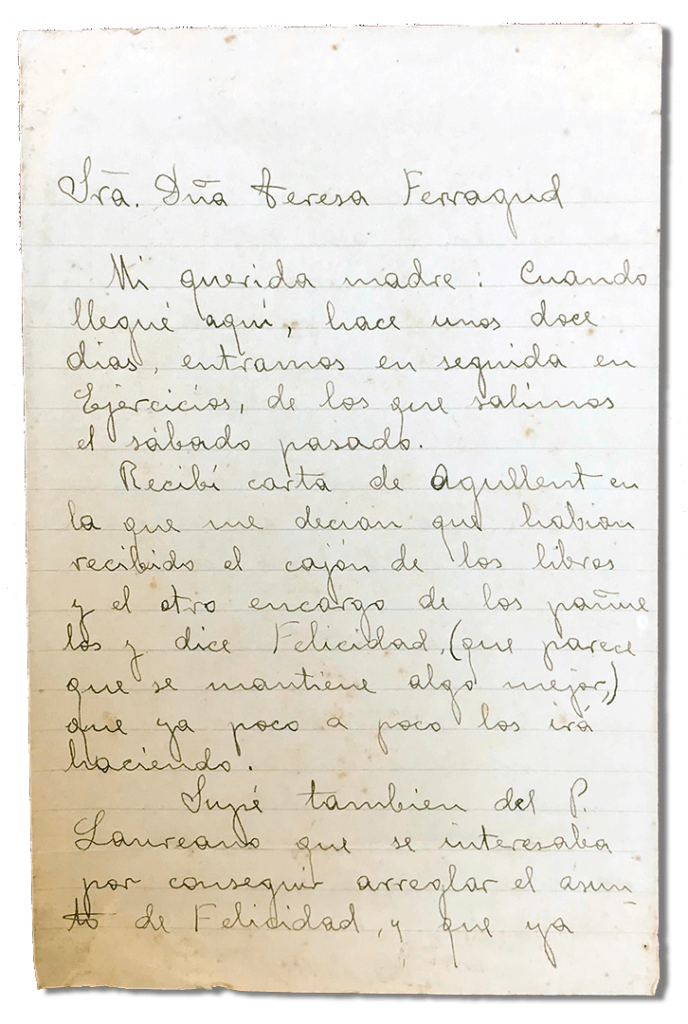 Srã. Dña teresa Ferragud
Mi querida madre: Cuando
llegué aquí, hace unos doce
dias, entramos en seguida en
Ejercicios, de los que salimos
el sábado pasado.
Recibí carta de Agullent en
la que me decian que habian
recibido el cajón de los libros
y el otro encargo de los pañue
los y dice Felicidad, (que parece
que se mantiene algo mejor,)
que ya poco a poco los irá
haciendo.
Supé tambien del P.
Laureano que se interesaba
por conseguir arreglar el asun
to de Felicidad, y que ya